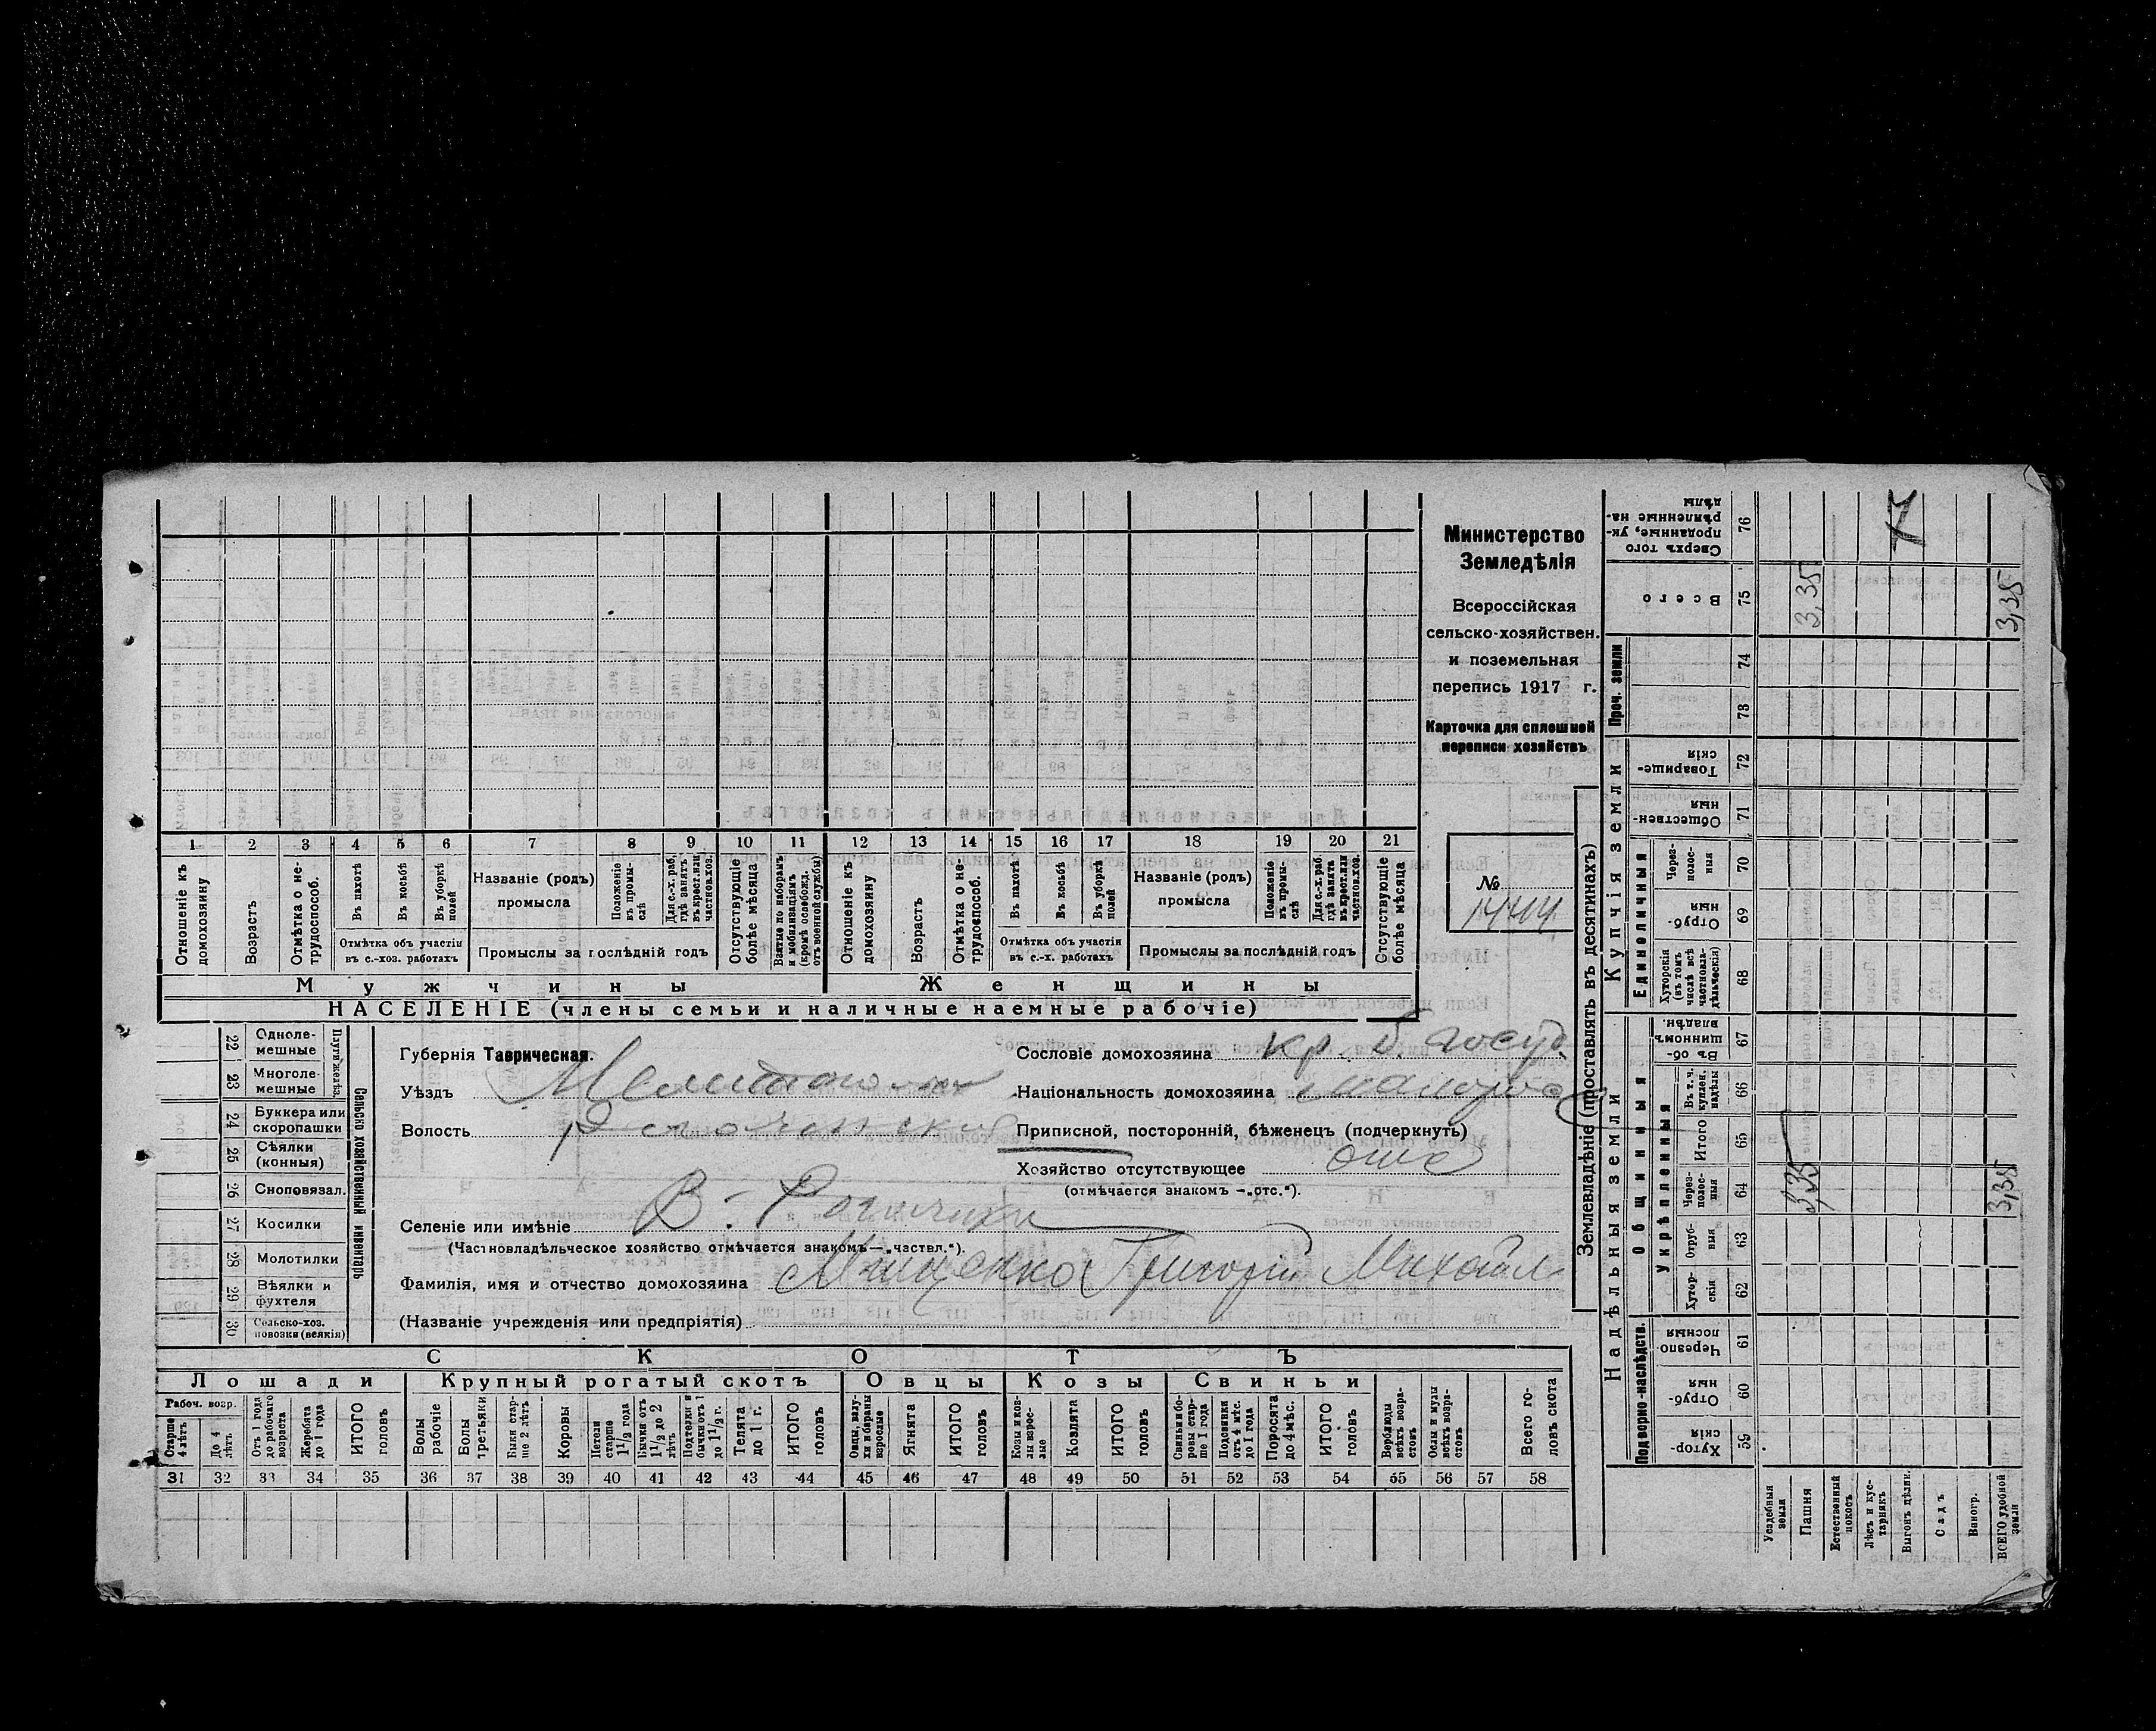 Министерство
Земледѣлія
Всероссійская
сельско-хозяйствен.
и поземельная
перепись 1917 г.
Карточка для сплошной
переписи хозяйствъ
№
1444
1 2 3 4 5 6 7 8 9 10 11 12 13 14 15 16 17 18 19 20 21
Отношеніе къ домохозяину
Возрастъ
Отмѣтка о не-трудоспособ.
Въ пахотѣ
Въ косьбѣ
Въ уборкѣ полей
Отмѣтка объ участіи
въ с.-хоз. работахъ
Названіе (родъ)
промысла
Положеніе въ промы-слѣ
Для с.-х. раб. гдѣ занятъ въ крест. или частнов. хоз.
Промыслы за послѣдній годъ
Отсутствующіе болѣе мѣсяца
Взятые по наборамъ и мобилизаціямъ (кромѣ освобожд. отъ военной службы)
Отношеніе къ домохозяину
Возрастъ
Отмѣтка о не-трудоспособ.
Въ пахотѣ
Въ косьбѣ
Въ уборкѣ полей
Отмѣтка объ участіи
въ с.-х. работахъ
Названіе (родъ)
промысла
Положеніе въ промы-слѣ
Для с.-х. раб. гдѣ занята въ крест. или частнов. хоз.
Промыслы за послѣдній годъ
Отсутствующіе болѣе мѣсяца
Мужчины
Женщины
НАСЕЛЕНІЕ (члены семьи и наличные наемные рабочіе)
22 Одноле-мешные
23 Многоле-мешные
Плуги желѣз.
24 Буккера или скоропашки
25 Сѣялки (конныя)
26 Сноповязал.
27 Косилки
28 Молотилки
29 Вѣялки и фухтеля
30 Сельско-хоз. повозки (всякія)
Сельско хозяйственный инвентарь
Губернія Таврическая.
Уѣздъ Мелитополь
Волость
Селеніе или имѣніе В.-Рогачики
(Частновладѣльческое хозяйство отмѣчается знакомъ—„частвл.“).
Фамилія, имя и отчество домохозяина Мищенко Григорій Михайл
(Названіе учрежденія или предпріятія)
Сословіе домохозяина кр. б. госуд.
Національность домохозяина малорос
Приписной, посторонній, бѣженецъ (подчеркнуть)
Хозяйство отсутствующее отс
(отмѣчается знакомъ —„отс.“).
СКОТЪ
Лошади
Крупный рогатый скотъ
Овцы
Козы
Свиньи
Рабоч. возр.
Старше 4 лѣтъ
До 4 лѣтъ
Отъ 1 года до рабочаго возраста
Жеребята до 1 года
ИТОГО головъ
Волы рабочіе
Волы третьяки
Быки стар-ше 2 лѣтъ
Коровы
Нетели старше 1½ года
Бычки отъ 1½ до 2 лѣтъ
Подтелки и бычки отъ 1 до 1½ г.
Телята до 1 г.
ИТОГО головъ
Овцы, валу-хи и бараны взрослые
Ягнята
ИТОГО головъ
Козы и коз-лы взрос-лые
Козлята
ИТОГО головъ
Свиньи и бо-ровы стар-ше 1 года
Подсвинки отъ 4 мѣс. до 1 года
Поросята до 4 мѣс.
ИТОГО головъ
Верблюды всѣхъ возра-стовъ
Ослы и мулы всѣхъ возра-стовъ
Всего го-ловъ скота
31 32 33 34 35 36 37 38 39 40 41 42 43 44 45 46 47 48 49 50 51 52 53 54 55 56 57 58
Землевладѣніе (проставлять въ десятинахъ)
Надѣльныя земли
Купчія земли
Проч. земли
Подворно-наслѣдств.
Общинныя
Укрѣпленныя
Единоличныя
Сверхъ того проданные, ук-рѣпленные на-дѣлы 76
Всего 75 3,35 3,35
74
73
Товарище-скія 72
Обществен-ныя 71
Через-полос-ныя 70
Отруб-ныя 69
Хуторскія (въ томъ числѣ всѣ частновла-дѣльческія) 68
Въ об-щинномъ владѣн. 67
Въ т. ч. куплен. надѣлы 66
Итого 65
Через-полос-ныя 64 3,35 3,35
Отруб-ныя 63
Хутор-скія 62
Черезпо-лосныя 61
Отруб-ныя 60
Хутор-скія 59
Усадебныя земли
Пашня
Естественный покосъ
Лѣсъ и кус-тарникъ
Выгонъ цѣлин.
Садъ
Виногр.
ВСЕГО удобной земли